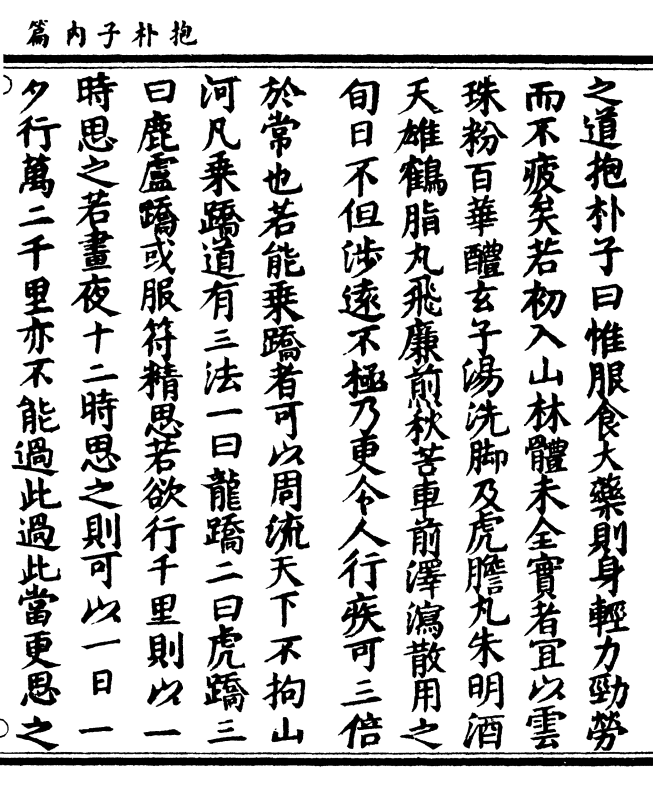 抱朴子內篇
之道抱朴子曰惟服食大藥則身輕力勁勞
而不疲矣若初入山林體未全實者宜以雲
珠粉百華醴玄子湯洗脚及虎膽丸朱明酒
天雄鶴脂丸飛廉煎秋苦車前澤瀉散用之
旬日不但涉遠不極乃更令人行疾可三倍
於常也若能乗蹻者可以周流天下不拘山
河凡乗蹻道有三法一曰龍蹻二曰虎蹻三
曰鹿盧蹻或服符精思若欲行千里則以一
時思之若晝夜十二時思之則可以一日一
夕行萬二千里亦不能過此過此當更思之